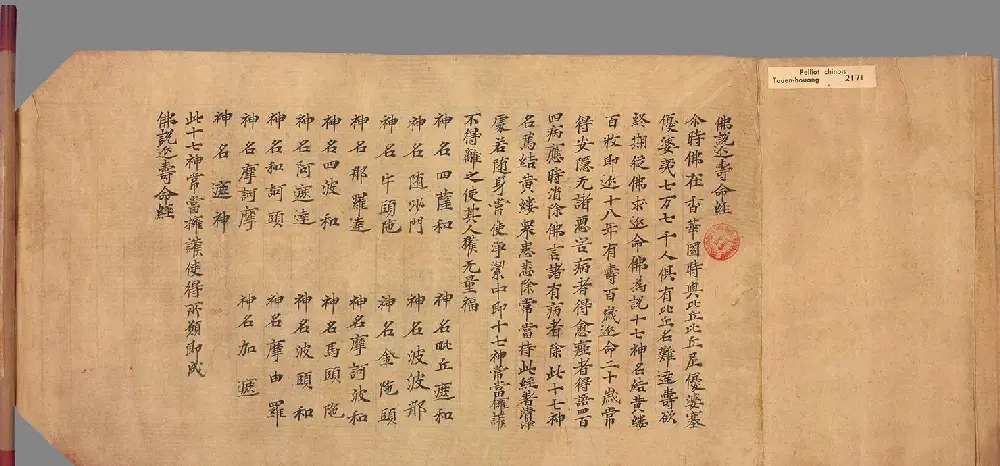 Pelliot chinois
Touen-houang 2171
佛說延壽命經
尒時佛在香華園時與比丘比丘尼優婆塞
優婆夷七万七千人俱有比丘名難達壽欲
終期從佛求延命佛為說十七神名結黃縷
百枚即延十八年有壽百歲延命二十歲常
得安隱无諸惡苦病者得愈瘂者得語四百
四病應時消除佛言諸有病者除此十七神
名為結黃縷眾患悉除常當持此經著
處若隨身常使淨絜中即十七神常當擁護
不得離之使其人獲无量福
神名四薩和 神名毗丘遮和
神名随沙門 神名波波那
神名牛頭陁 神名金陁頭
神名那羅達 神名摩訶波和
神名四波和 神名馬頭陁
神名阿遮達 神名波頭和
神名和訶頭 神名摩由羅
神名摩訶摩 神名加遮
神名遮神
此十七神常當擁護使得所願即成
佛說延壽命經